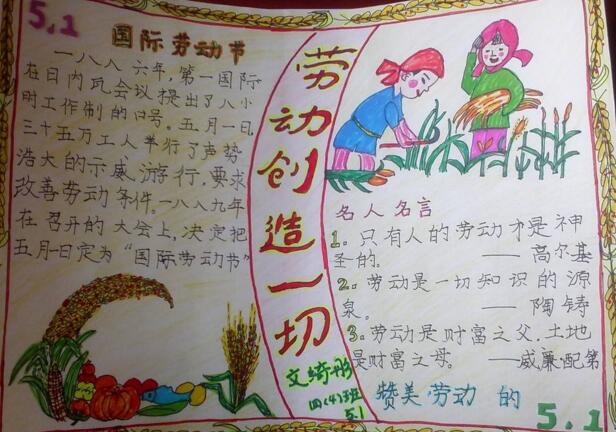 5.1
国际劳动节
一八八六年,第一国际
在日内瓦会议提出了八小
时工作制的口号。五月一日
三十五万工人举行了声势
浩大的示威游行,要求
改善劳动条件。一八八九年
在召开的大会上,决定把
五月一日定为“国际劳动节”
劳动创造一切
文绮彤
四(4)班
5.1
名人名言
1。只有人的劳动才是神
圣的。——高尔基
2。劳动是一切知识的源
泉。——陶铸
3。劳动是财富之父,土地
是财富之母。——威廉·配第
赞美劳动的
5.1